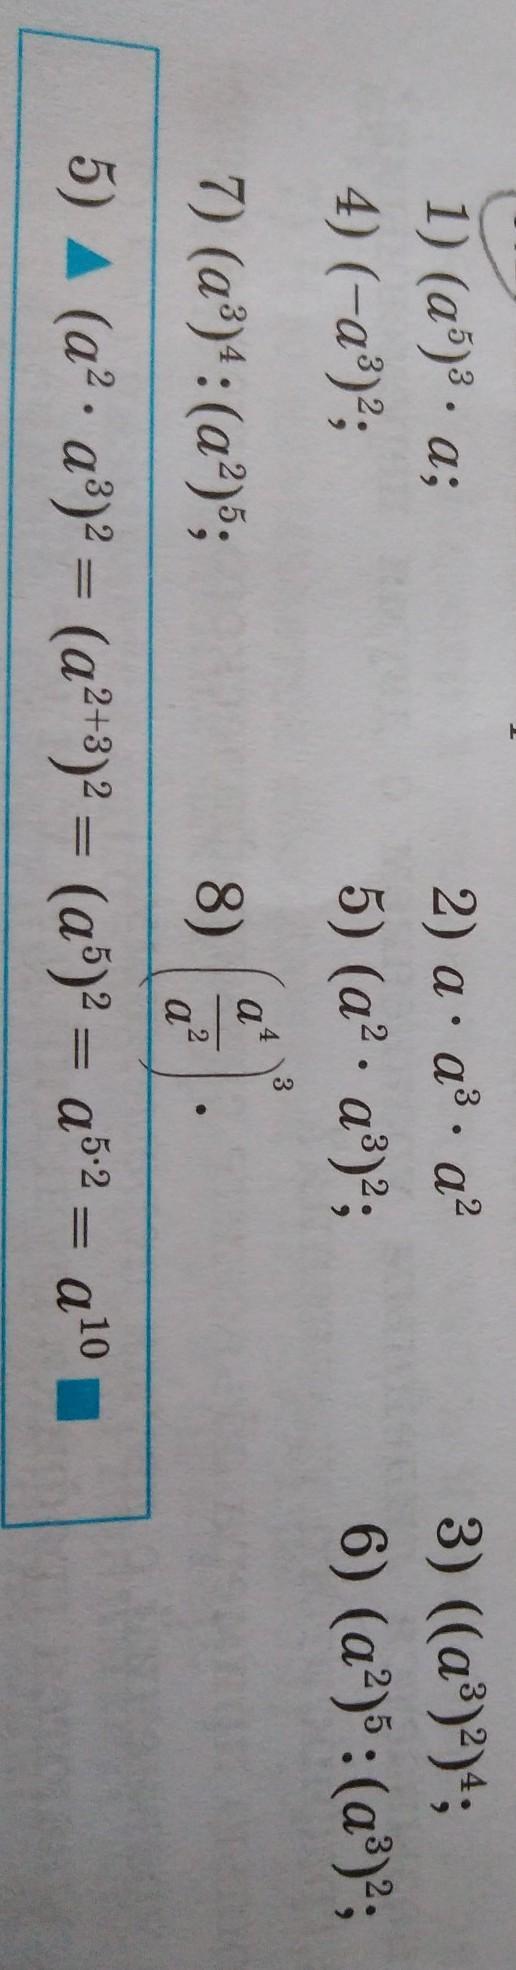 1) (a⁵)³ · a; 2) a · a³ · a² 3) ((a³)²)⁴;
4) (−a³)²; 5) (a² · a³)²; 6) (a²)⁵ : (a³)²;
7) (a³)⁴ : (a²)⁵; 8) (a⁴/a²)³.
5) ▲ (a² · a³)² = (a²⁺³)² = (a⁵)² = a⁵·² = a¹⁰ ■